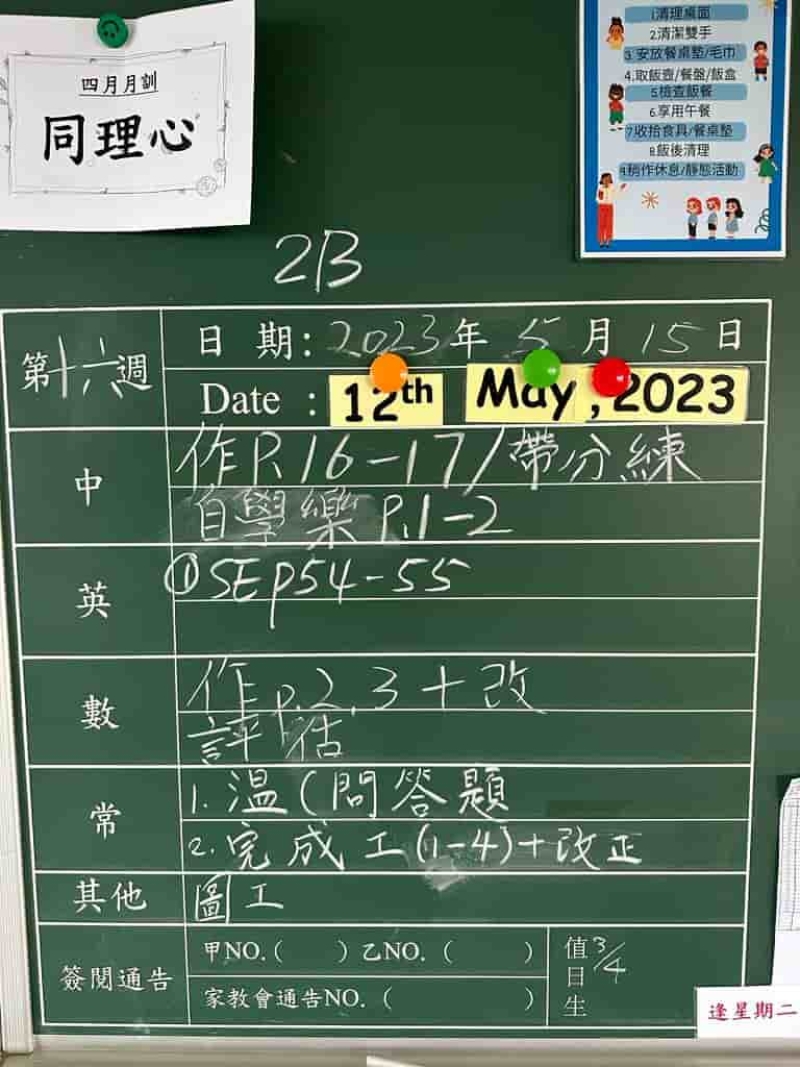 四月月訓
同理心
1.清理桌面
2.清潔雙手
3.安放餐桌墊/毛巾
4.取飯壺/餐盤/飯盒
5.檢查飯餐
6.享用午餐
7.收拾食具/餐桌墊
8.飯後清理
9.稍作休息/靜態活動
2B
第十六週
日期：2023年5月15日
Date : 12th May, 2023
中
作P.16-17/帶分練
自學樂P.1-2
英
①SEp54-55
數
作p.2,3+改
評估
常
1.溫(問答題
2.完成工(1-4)+改正
其他
圖工
簽閱通告
甲NO.( )乙NO.( )
家教會通告NO.( )
值日生
3/4
逢星期二